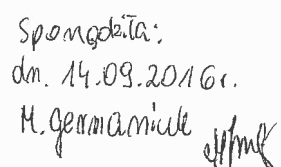 Sporządziła:
dn. 14.09.2016r.
M. Germaniuk